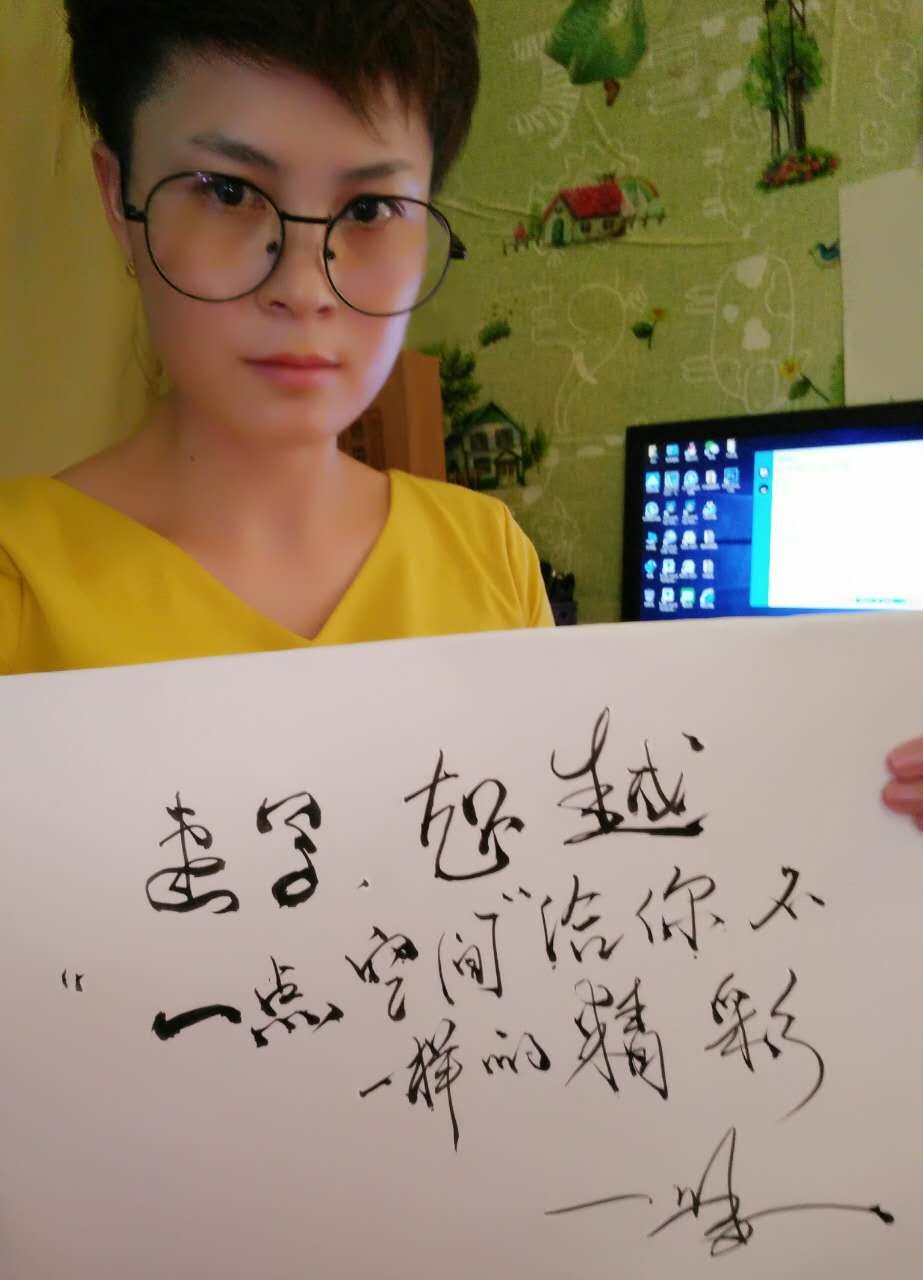 速写、超越
“一点空间”给你不
一样的精彩